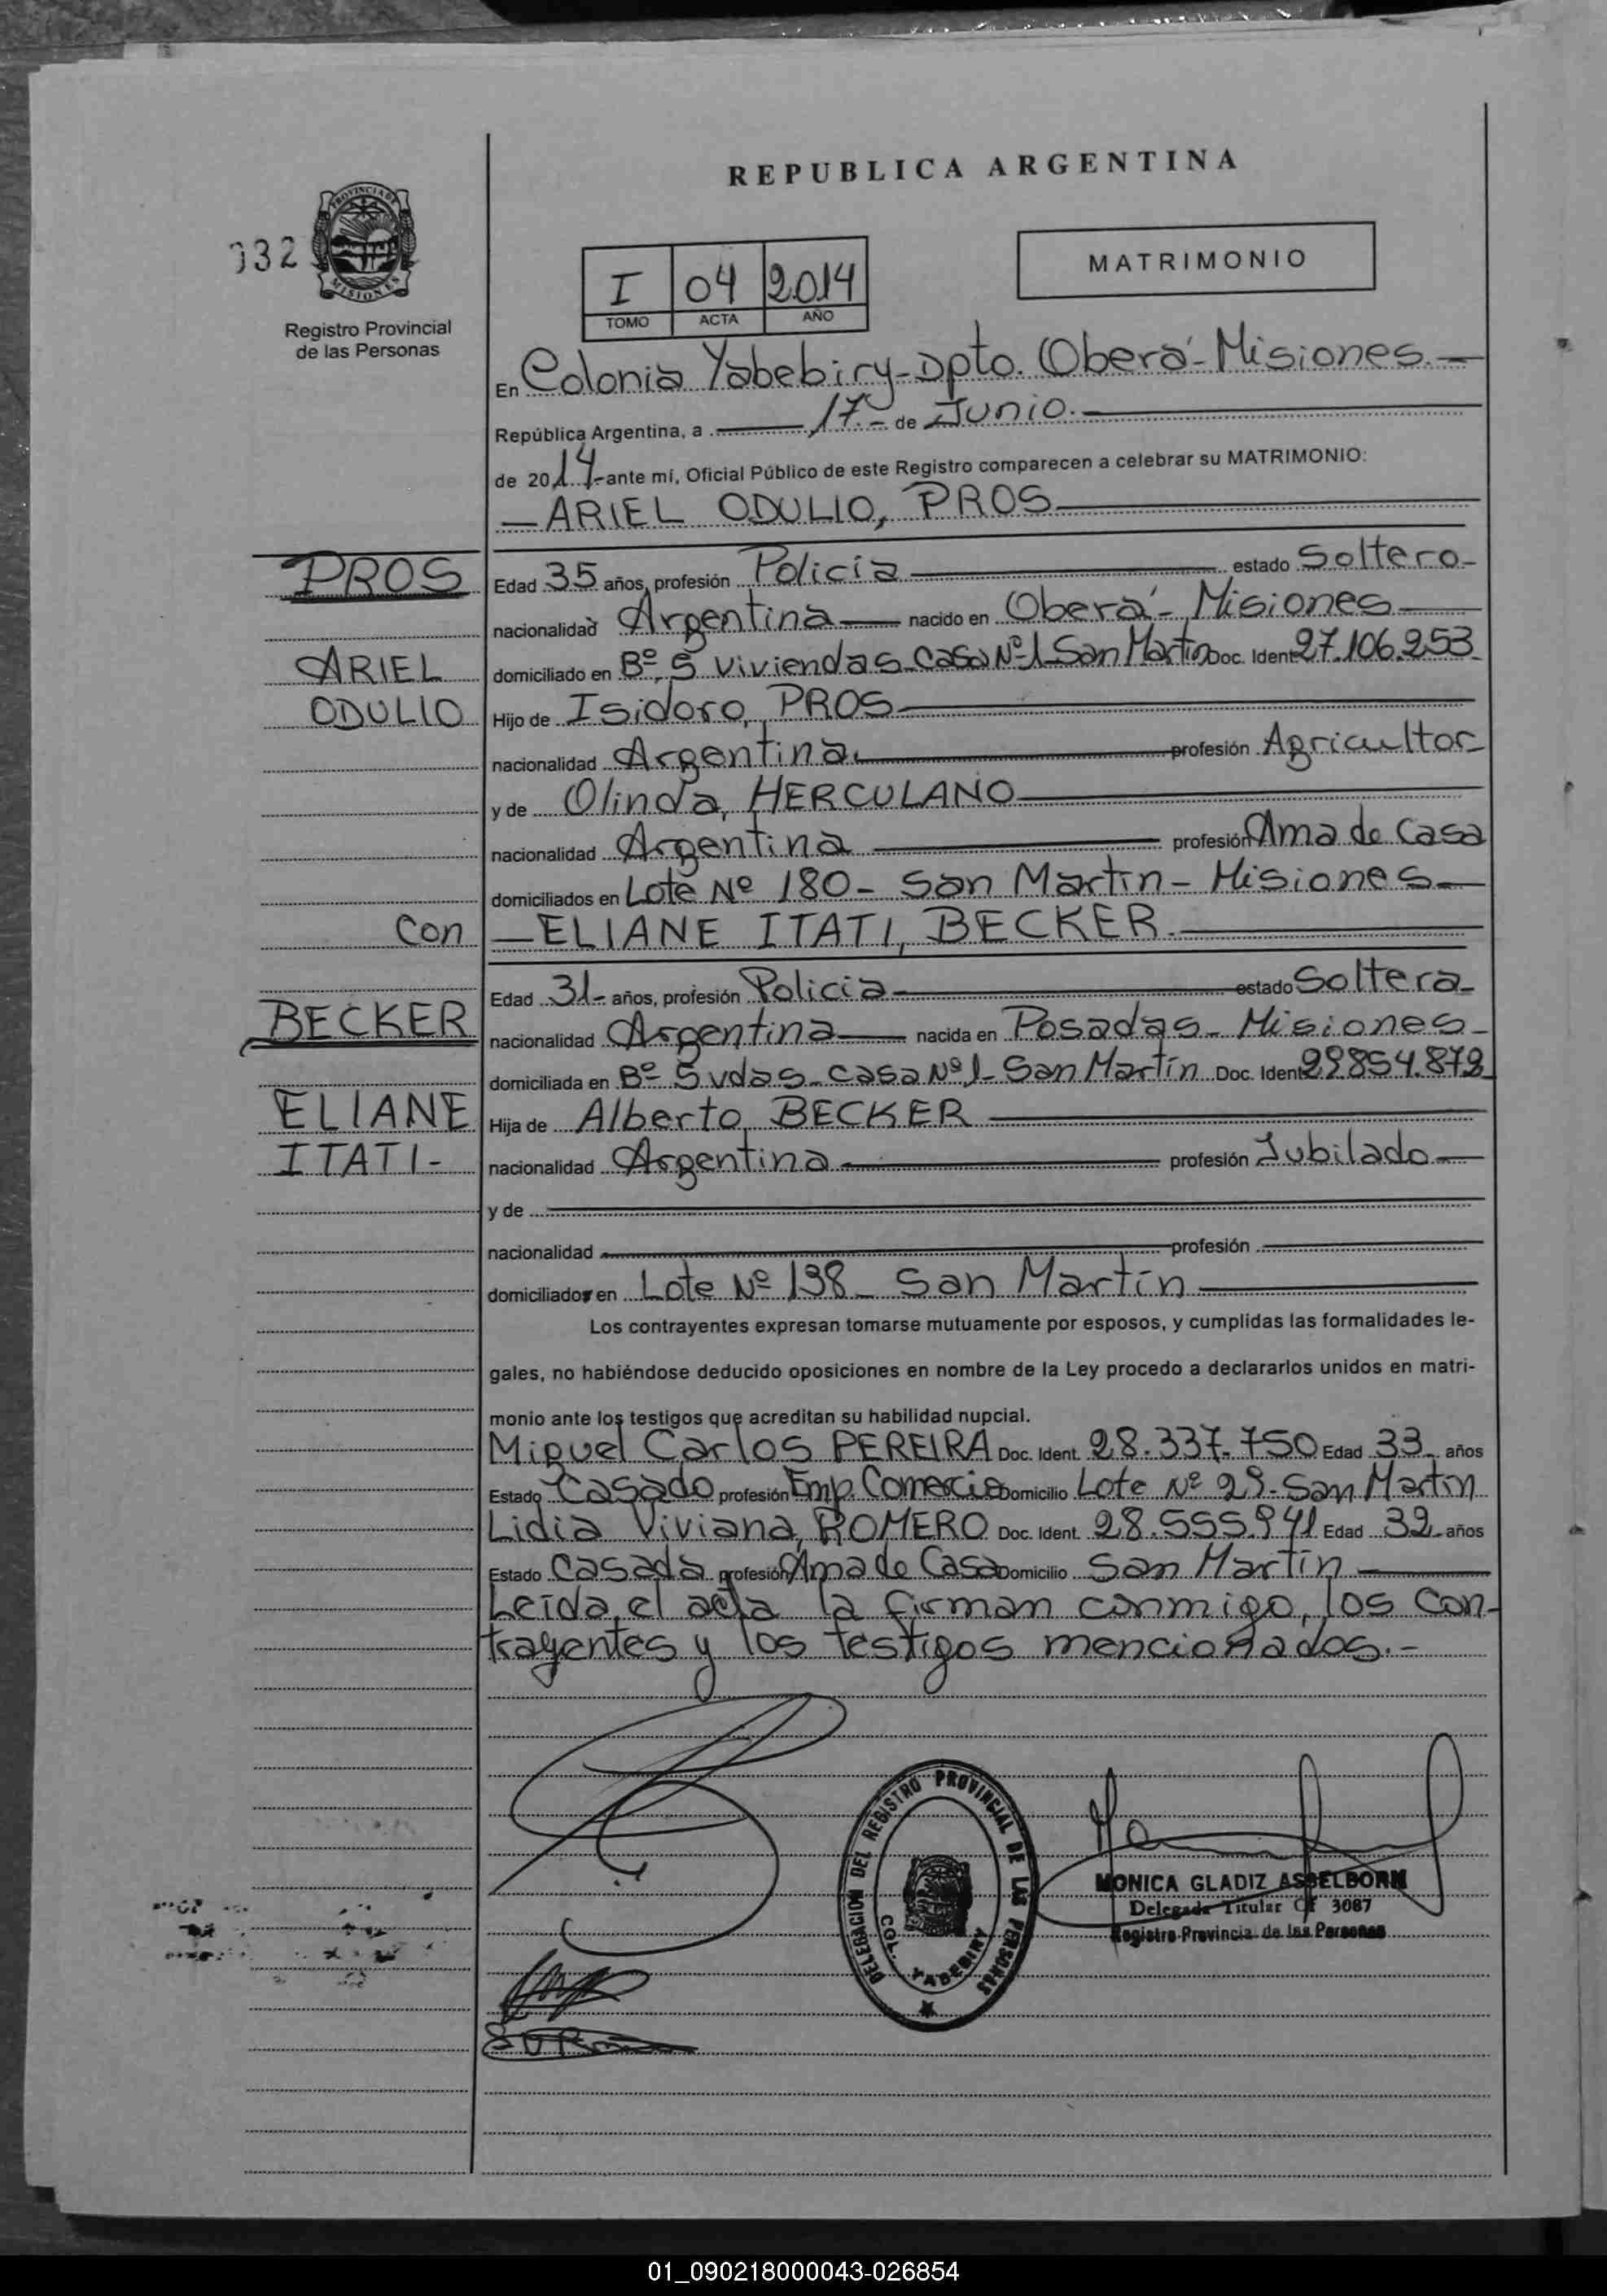 REPUBLICA ARGENTINA
032
PROVINCIA DE MISIONES
Registro Provincial
de las Personas
I 04 2014
TOMO ACTA AÑO
MATRIMONIO
En Colonia Yabebiry-Dpto. Oberá-Misiones.-
República Argentina, a 17.- de Junio.
de 2014-ante mí, Oficial Público de este Registro comparecen a celebrar su MATRIMONIO:
-ARIEL ODULIO, PROS
PROS
Edad 35 años, profesión Policía estado Soltero-
nacionalidad Argentina nacido en Oberá- Misiones
ARIEL
domiciliado en Bº 5 Viviendas-Casa Nº1-San Martín Doc. Ident 27.106.253
ODULIO
Hijo de Isidoro, PROS
nacionalidad Argentina. profesión Agricultor
y de Olinda, HERCULANO
nacionalidad Argentina profesión Ama de Casa
domiciliados en Lote Nº 180- San Martín- Misiones-
Con
-ELIANE ITATI, BECKER.
Edad 31- años, profesión Policía estado Soltera-
BECKER
nacionalidad Argentina nacida en Posadas- Misiones-
domiciliada en Bº 5 vdas-casa Nº1- San Martín Doc. Ident 29854.872
ELIANE
Hija de Alberto, BECKER
ITATI-
nacionalidad Argentina profesión Jubilado
y de
nacionalidad profesión
domiciliados en Lote Nº 138- San Martín
Los contrayentes expresan tomarse mutuamente por esposos, y cumplidas las formalidades le-
gales, no habiéndose deducido oposiciones en nombre de la Ley procedo a declararlos unidos en matri-
monio ante los testigos que acreditan su habilidad nupcial.
Miguel Carlos PEREIRA Doc. Ident. 28.337.750 Edad 33- años
Estado Casado profesión Emp. Comercio Domicilio Lote Nº 29-San Martín
Lidia Viviana, ROMERO Doc. Ident. 28.555.941 Edad 32-años
Estado Casada profesión Ama de Casa Domicilio San Martín
Leída el acta la firman conmigo, los con-
trayentes y los testigos mencionados.-
DELEGACION DEL REGISTRO PROVINCIAL DE LAS PERSONAS
COL. YABEBIRY
MONICA GLADIZ ASSELBORN
Delegada Titular Cf 3087
Registro Provincial de las Personas
01_090218000043-026854